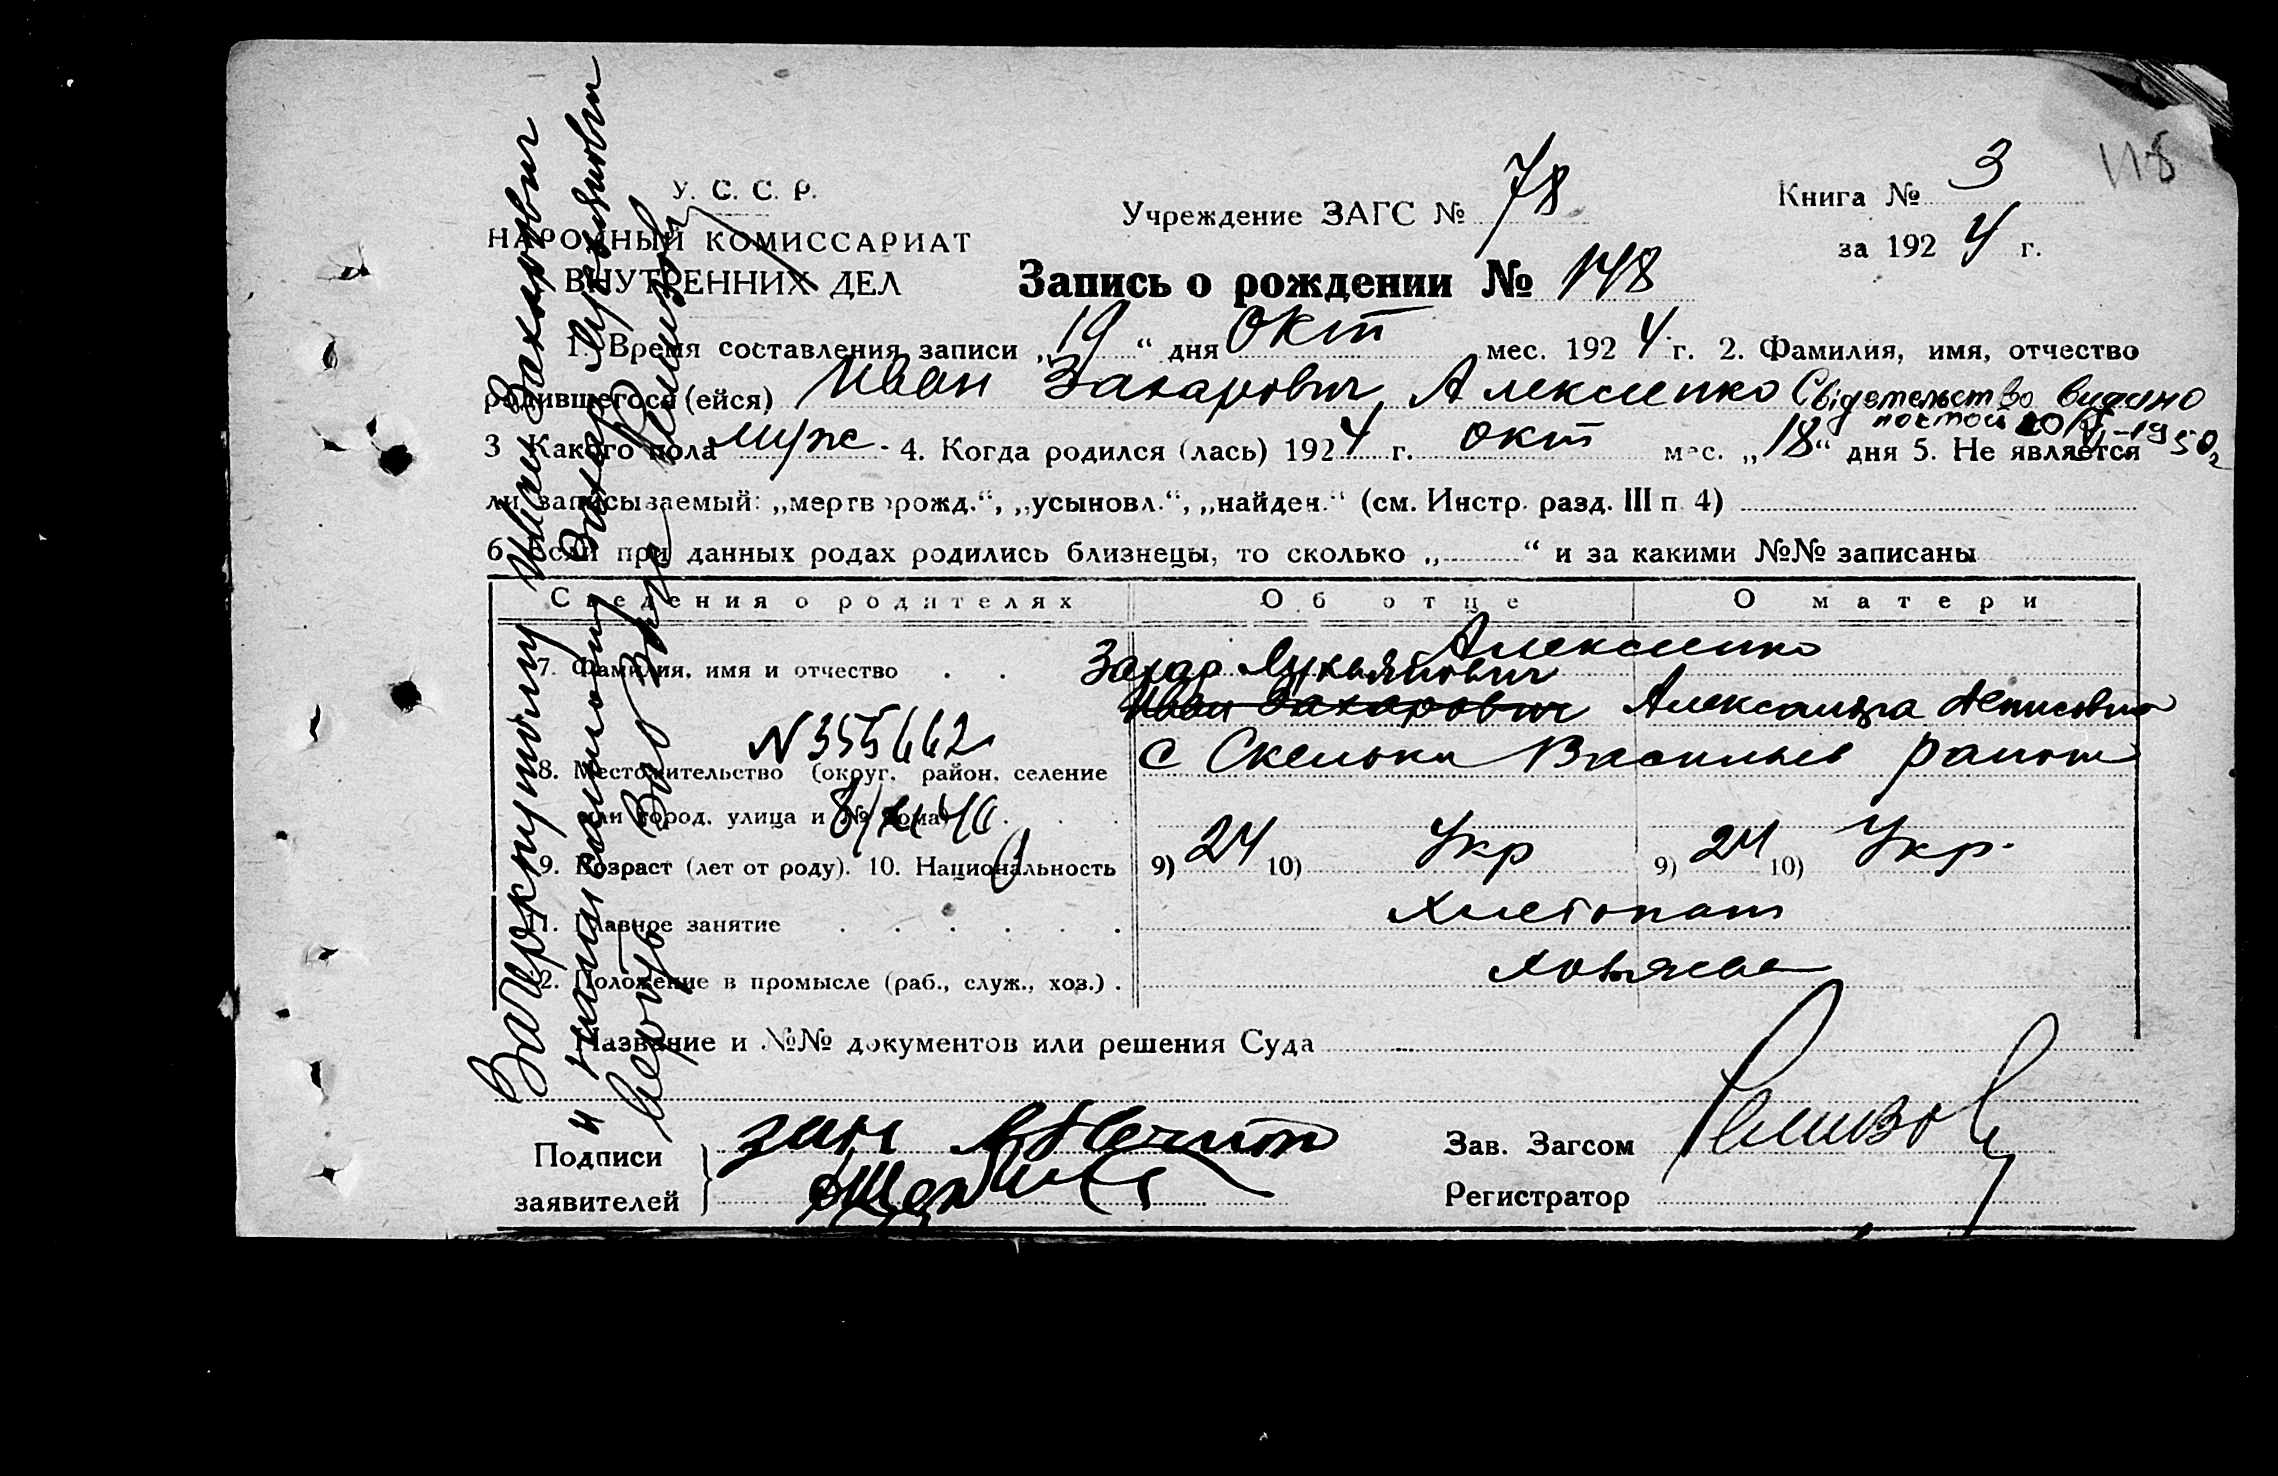 118
У. С. С. Р.
НАРОДНЫЙ КОМИССАРИАТ
ВНУТРЕННИХ ДЕЛ
Учреждение ЗАГС № 78
Книга № 3
за 1924 г.
Запись о рождении № 148
1. Время составления записи „19“ дня окт мес. 1924 г. 2. Фамилия, имя, отчество
родившегося (ейся) Иван Захарович Алексеенко Свідетельство видано
3 Какого пола муж 4. Когда родился (лась) 1924 г. окт мес. „18“ дня 5. Не является
20/VI-1950
ли записываемый: „мертворожд.“, „усыновл.“, „найден.“ (см. Инстр. разд. III п. 4)
6. Если при данных родах родились близнецы, то сколько „ “ и за какими №№ записаны
Сведения о родителях Об отце О матери
Алексеенко
7. Фамилия, имя и отчество Захар Лукьянович
Иван Захарович Александра Денисовна
N 355662
8. Местожительство (округ, район, селение с Скельки Васильев района
или город, улица и № дома)
9. Возраст (лет от роду). 10. Национальность 9) 24 10) Укр 9) 24 10) Укр.
11. Главное занятие Хлебопаш
12. Положение в промысле (раб., служ., хоз.) хозяева
Название и №№ документов или решения Суда
Подписи
заявителей
Зав. Загсом Ремизов
Регистратор
Зачеркнутому Иван Захарович
и написанному Захар Лукьянович
верить Зав Загс Ремизов